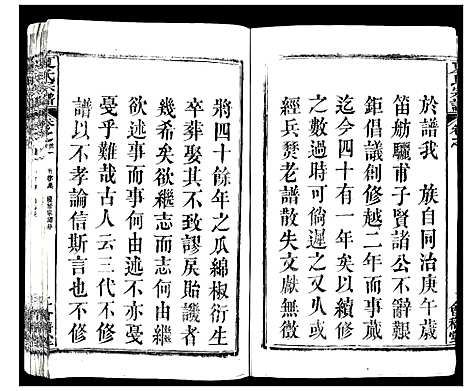 於譜我 族自同治庚午歲
笛舫驪甫子賢諸公不辭艱
鉅倡議創修越二年而事蕆
迄今四十有一年矣以續修
之期以時考之可倘遲之又遲
經兵燹老譜散失文獻無徵
將四十餘年之瓜綿椒衍生
卒葬娶其不致謬戾貽譏者
幾希矣欲繼志而志何由繼
欲述事而事何由述不亦戞
戞乎難哉古人云三代不修
譜以不孝論信斯言也不修
夏氏宗譜
會稽堂